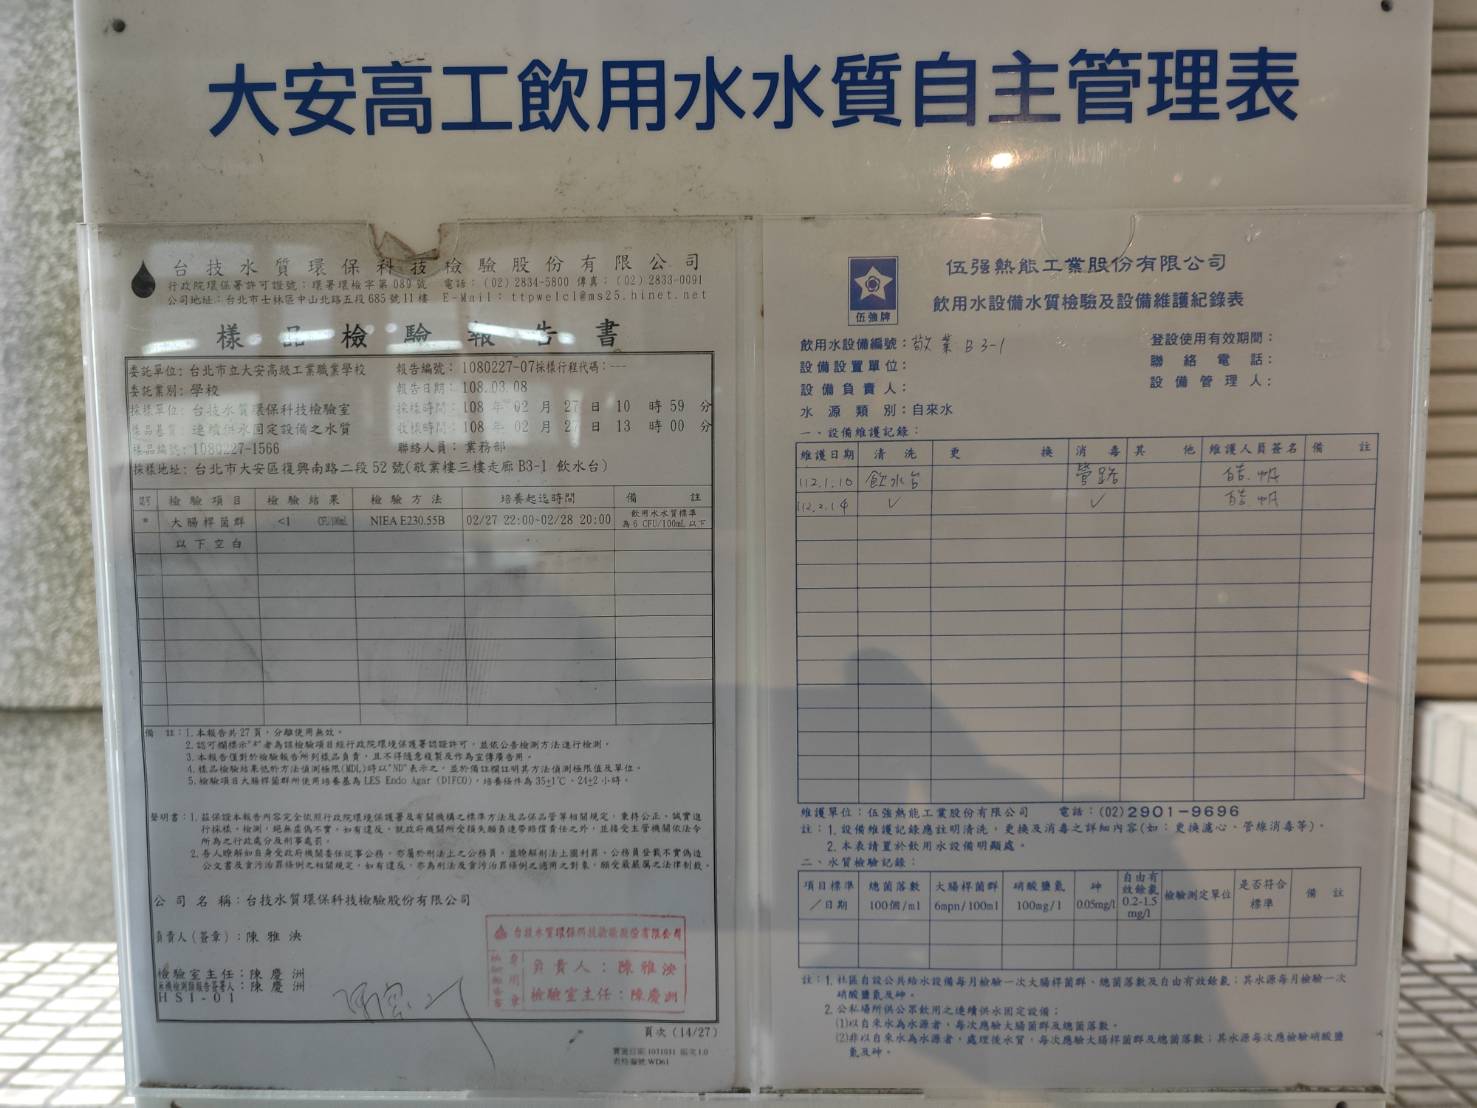 大安高工飲用水水質自主管理表
台技水質環保科技檢驗股份有限公司
行政院環保署許可證號：環署環檢字第089號 電話：(02)2834-5800 傳真：(02)2833-0091
公司地址：台北市士林區中山北路五段685號11樓 E-Mail：ttpwelcl@ms25.hinet.net
樣品檢驗報告書
委託單位：台北市立大安高級工業職業學校 報告編號：1080227-07採樣行程代碼：---
委託業別：學校 報告日期：108.03.08
採樣單位：台技水質環保科技檢驗室 採樣時間：108年02月27日10時59分
樣品基質：連續供水固定設備之水質 收樣時間：108年02月27日13時00分
樣品編號：1080227-1566 聯絡人員：業務部
採樣地址：台北市大安區復興南路二段52號(敬業樓三樓走廊B3-1 飲水台)
檢驗項目 檢驗結果 檢驗方法 培養起迄時間 備註
* 大腸桿菌群 <1 CFU/100mL NIEA E230.55B 02/27 22:00~02/28 20:00 飲用水水質標準為6 CFU/100mL以下
以下空白
備 註：1.本報告共27頁，分離使用無效。
2.認可欄標示"*"者為該檢驗項目經行政院環境保護署認證許可，並依公告檢測方法進行檢測。
3.本報告僅對於檢驗報告所列樣品負責，且不得隨意複製及作為宣傳廣告用。
4.樣品檢驗結果低於方法偵測極限(MDL)時以"ND"表示之，並於備註欄註明其方法偵測極限值及單位。
5.檢驗項目大腸桿菌群所使用培養基為LES Endo Agar (DIFCO)，培養條件為35±1℃、24±2小時。
聲明書：1.茲保證本報告內容完全依照行政院環境保護署及有關機構之標準方法及品保品管等相關規定，秉持公正、誠實進
行採樣、檢測，絕無虛偽不實，如有違反，就政府機關所受損失願負連帶賠償責任之外，並接受主管機關依法令
所為之行政處分及刑事處罰。
2.吾人瞭解如自身受政府機關委任從事公務，亦屬於刑法上之公務員，並瞭解刑法上圖利罪、公務員登載不實偽造
公文書及貪污治罪條例之相關規定，如有違反，亦為刑法及貪污治罪條例之適用之對象，願受最嚴厲之法律制裁。
公司名稱：台技水質環保科技檢驗股份有限公司
負責人(簽章)：陳雅泱
檢驗室主任：陳慶洲
無機檢測類報告簽署人：陳慶洲
HSI-01
台技水質環保科技檢驗股份有限公司
負責人：陳雅泱
檢驗室主任：陳慶洲
頁次(14/27)
伍強牌
伍強熱能工業股份有限公司
飲用水設備水質檢驗及設備維護紀錄表
飲用水設備編號：敬業B3-1 登設使用有效期間：
設備設置單位： 聯絡電話：
設備負責人： 設備管理人：
水源類別：自來水
一、設備維護記錄：
維護日期 清洗 更換 消毒 其他 維護人員簽名 備註
112.1.10 飲水台 管路
112.2.14 ✓ ✓
維護單位：伍強熱能工業股份有限公司 電話：(02)2901-9696
註：1.設備維護記錄應註明清洗、更換及消毒之詳細內容(如：更換濾心、管線消毒等)。
2.本表請置於飲用水設備明顯處。
二、水質檢驗記錄：
項目標準／日期 總菌落數100個/ml 大腸桿菌群6mpn/100ml 硝酸鹽氮100mg/l 砷0.05mg/l 自由有效餘氯0.2-1.5mg/l 檢驗測定單位 是否符合標準 備註
註：1.社區自設公共給水設備每月檢驗一次大腸桿菌群、總菌落數及自由有效餘氯；其水源每月檢驗一次
硝酸鹽氮及砷。
2.公私場所供公眾飲用之連續供水固定設備：
(1)以自來水為水源者，每次應驗大腸桿菌群及總菌落數。
(2)非以自來水為水源者，處理後水質，每次應驗大腸桿菌群及總菌落數；其水源每次應檢驗硝酸鹽
氮及砷。